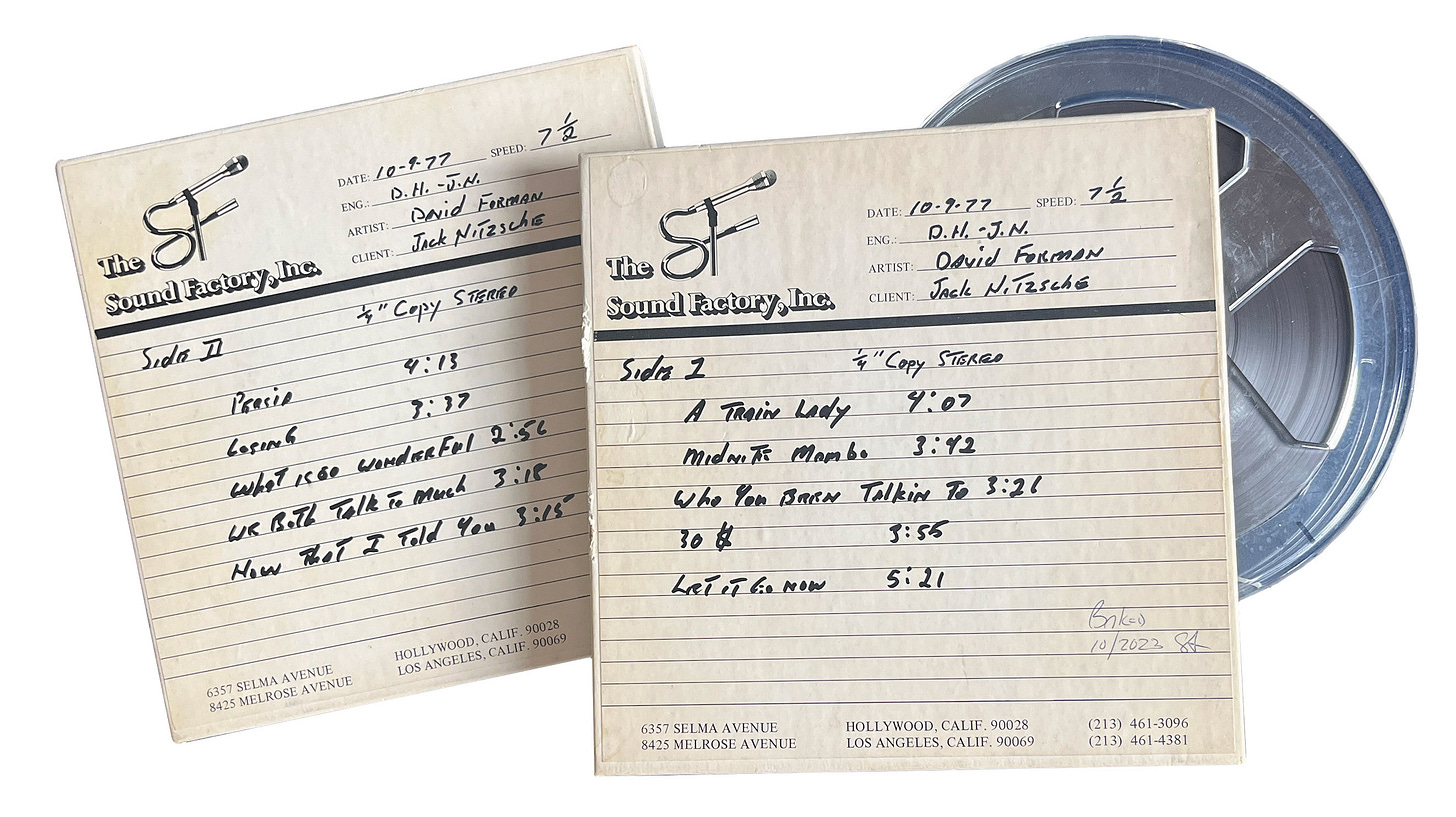 The SF Sound Factory, Inc.
DATE: 10-9-77 SPEED: 7 1/2
ENG.: D.H. -J.N.
ARTIST: David Forman
CLIENT: Jack Nitzsche
1/4" Copy Stereo
Side II
Persia 4:13
Losing 3:37
What is so wonderful 2:56
We Both Talk To Much 3:18
Now That I Told You 3:15
6357 SELMA AVENUE HOLLYWOOD, CALIF. 90028
8425 MELROSE AVENUE LOS ANGELES, CALIF. 90069
The SF Sound Factory, Inc.
DATE: 10-9-77 SPEED: 7 1/2
ENG.: D.H. -J.N.
ARTIST: David Forman
CLIENT: Jack Nitzsche
Side I 1/4" Copy Stereo
A Train Lady 4:07
Midnite Mambo 3:42
Who You Been Talkin To
30 $ 3:55
Let it Go now 5:21
Baked
10/2023
6357 SELMA AVENUE HOLLYWOOD, CALIF. 90028 (213) 461-3096
8425 MELROSE AVENUE LOS ANGELES, CALIF. 90069 (213) 461-4381